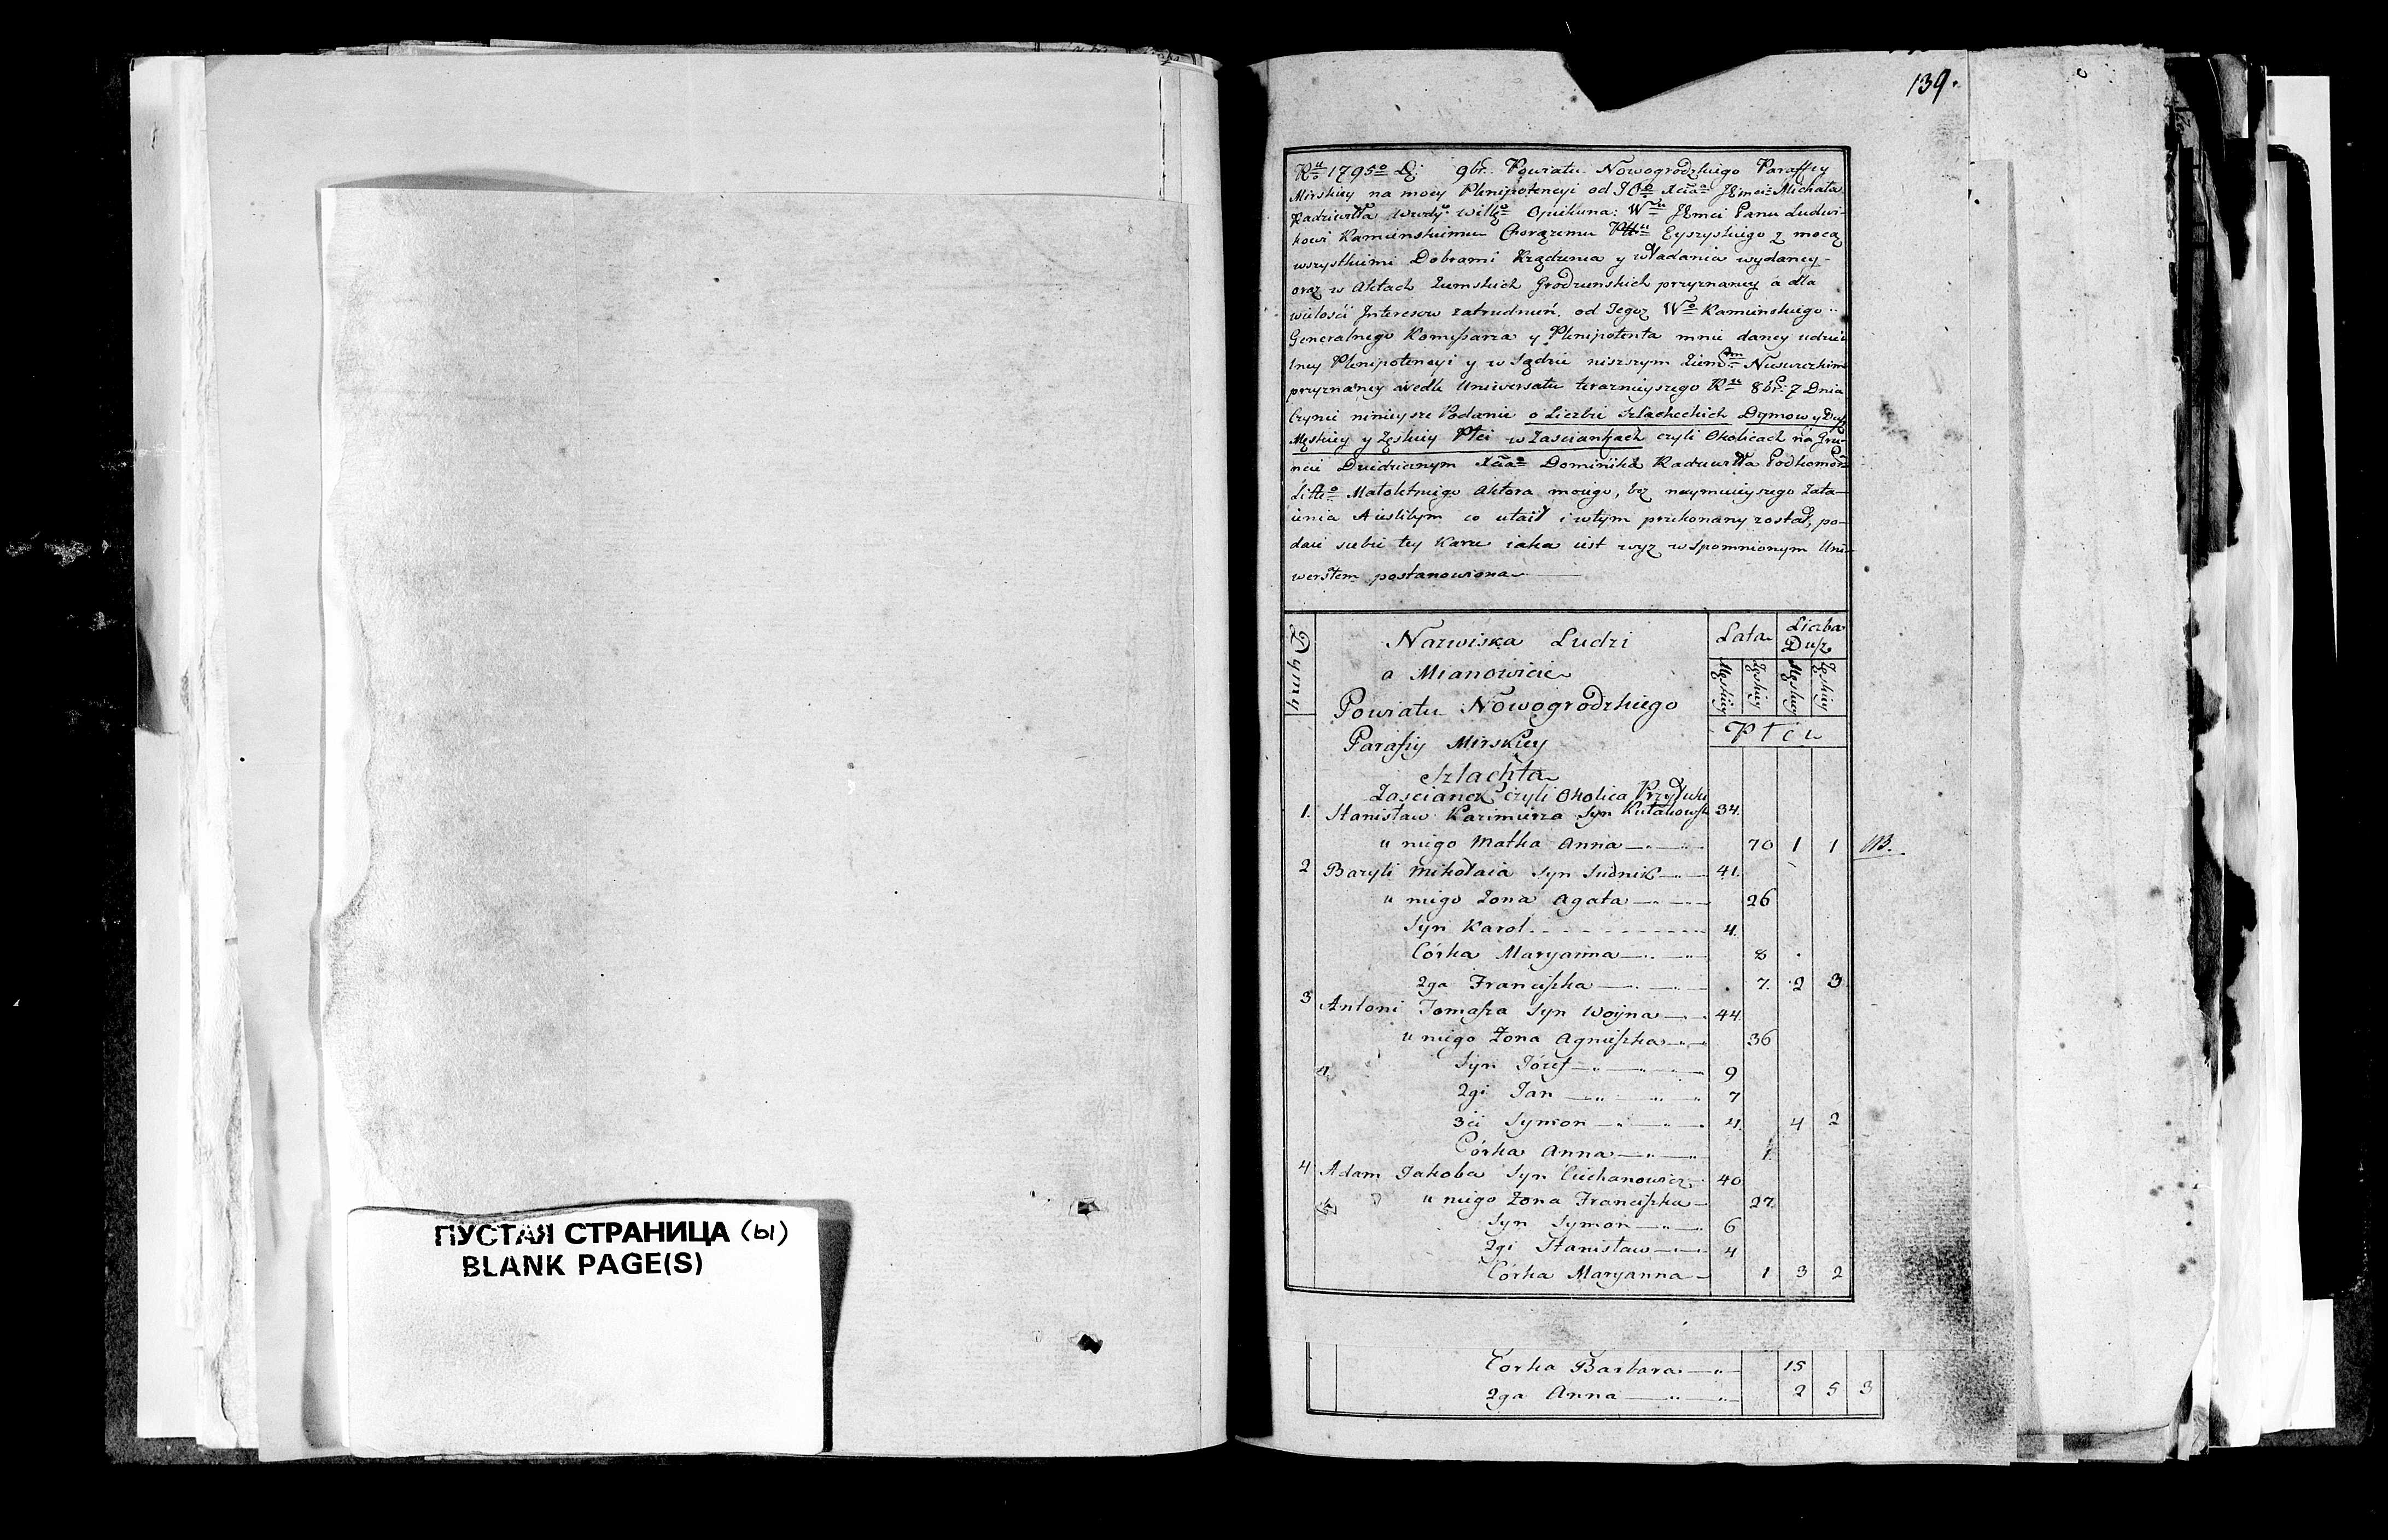 139.
Ru 1795o D: 9br. Powiatu Nowogrodzkiego Paraffiy
Mirskiey na mocy Plenipotencyi od JOo Xcia Jmci Michała
Radziwiłła Opiekuna: Wu Jmci Panu Ludwi-
kowi Kamienskiemu Chorązemu Pttu Eyszyskiego z mocą
wszystkiemi Dobrami Rządzenia y władania wydaney-
oraz w Aktach Ziemskich Grodzienskich przyznaney á dla
wielości Interesow zatrudnień, od Tegoż Wo Kamienskiego
Generalnego Komissarza y Plenipotenta mnie daney udziel
lney Plenipotencyi y w Sądzie nizszym Ziemskm Nieswizkim
przyznaney wedle Uniwersału terazneyszego Ru 8br: 7 Dnia
Czynie ninieysze Podanie o Liczbie Szlacheckich Dymow y Dusz
Męskiey y Zęskiey Płci w Zasciankach czyli Okolicach na Gru-
ncie Dziedzicznym Xcia Dominika Radziwiłła Podkomorz
Littgo Małoletniego Aktora moiego, bez naymnieyszego Zata-
ienia A ieslibym co utaił i w tym przekonany został, po-
daie siebie tey Karze iaka iest wyz wspomnionym Uni-
werstem postanowiona
Dymy
Nazwiska Ludzi
a Mianowicie
Powiatu Nowogrodzkiego
Parafiy Mirskiey
Szlachta
Zascianek czyli Okolica
Lata Liczba Dusz
Męskiey Zęskiey Męskiey Zęskiey
Płci
1. Stanisław Kazimierza Syn 34.
u niego Matka Anna 70 1 1 NB.
2 Bazyli Mikołaia Syn Sudnik 41.
u niego Zona Agata 26
Syn Karol 4.
Córka Maryanna 8
2ga Franciszka 7. 2 3
3 Antoni Tomasza Syn Woyna 44.
u niego Zona Agnieszka 36
Syn Józef 9
2gi Jan 7
3ci Symon 4. 4 2
Córka Anna 1
4 Adam Jakoba Syn Ciechanowicz 40
u niego Zona Franciszka 27.
Syn Symon 6
2gi Stanisław 4
Córka Maryanna 1 3 2
Corka Barbara 15
2ga Anna 2 5 3
ПУСТАЯ СТРАНИЦА (ы)
BLANK PAGE(S)